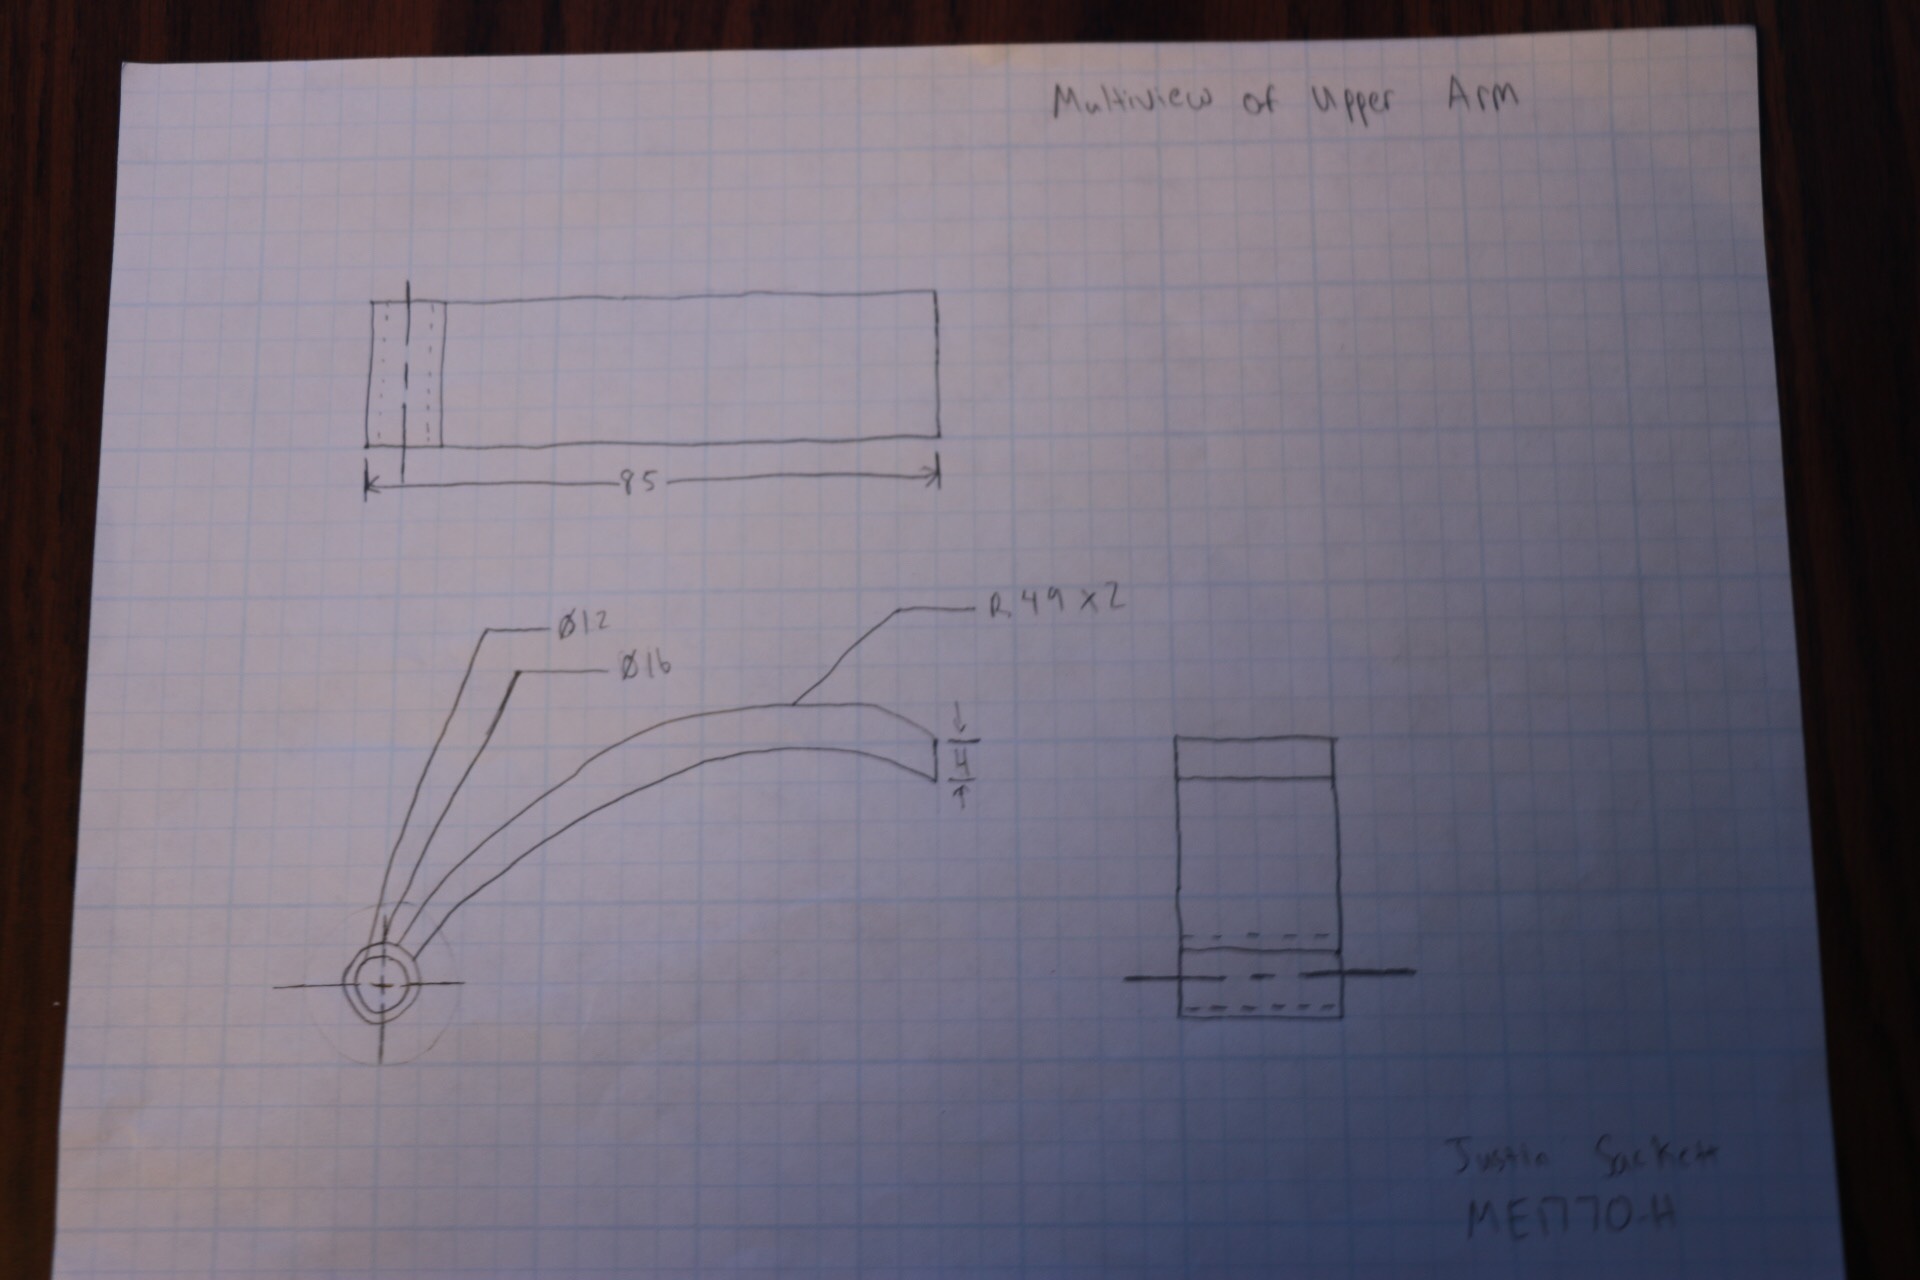 Multiview of Upper Arm
85
Ø12
Ø16
R 49 x 2
4
Justin Sackett
ME1770-H